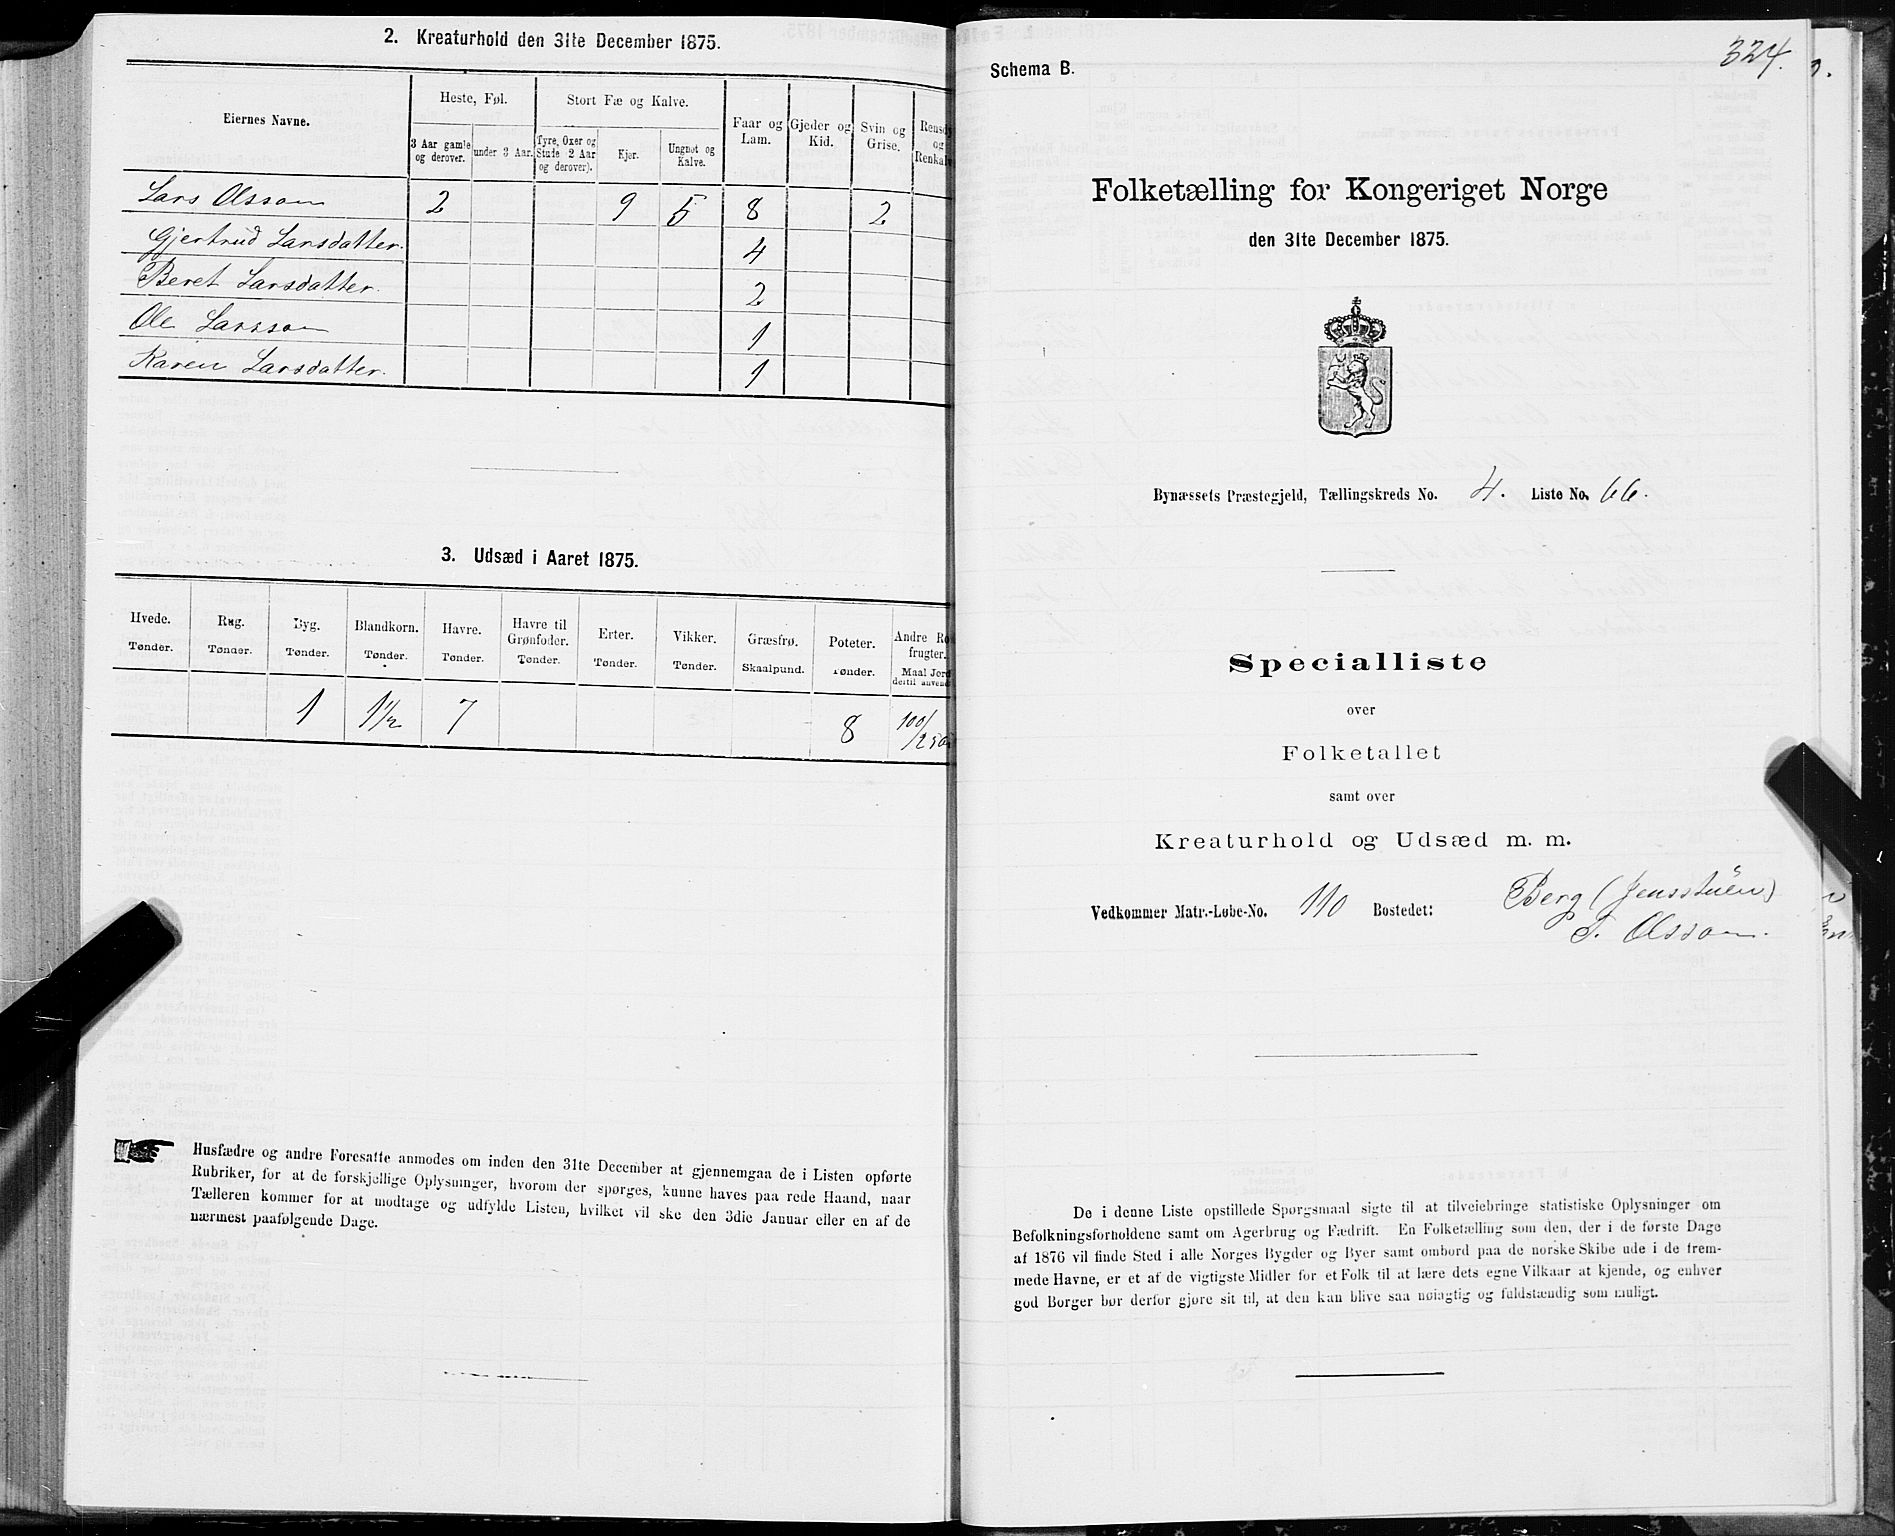 2. Kreaturhold den 31te December 1875.
Eiernes Navne.
Heste, Føl.
Stort Fæ og Kalve.
Faar og Lam.
Gjeder og Kid.
Svin og Grise.
3 Aar gamle og derover.
under 3 Aar.
Tyre, Oxer og Stude 2 Aar og derover).
Kjør.
Ungnøt og Kalve.
Lars Olsson 2 9 5 8 2
Gjertrud Larsdatter. 4
Beret Larsdatter. 2
Ole Larsson 1
Karen Larsdatter. 1
3. Udsæd i Aaret 1875.
Hvede. Rug. Byg. Blandkorn. Havre. Havre til Grønfoder. Erter. Vikker. Græsfrø. Poteter. Andre Ro frugter.
Tønder. Tønder. Tønder. Tønder. Tønder. Tønder. Tønder. Tønder. Skaalpund. Tønder. Maal Jord dertil anvend
1 1 1/2 7 8 100/250
Husfædre og andre Foresatte anmodes om inden den 31te December at gjennemgaa de i Listen opførte
Rubriker, for at de forskjellige Oplysninger, hvorom der spørges, kunne haves paa rede Haand, naar
Tælleren kommer for at modtage og udfylde Listen, hvilket vil ske den 3die Januar eller en af de
nærmest paafølgende Dage.
324.
Schema B.
Folketælling for Kongeriget Norge
den 31te December 1875.
Bynæssets Præstegjeld, Tællingskreds No. 4. Liste No. 66.
Specialliste
over
Folketallet
samt over
Kreaturhold og Udsæd m. m.
Vedkommer Matr.-Løbe-No. 110 Bostedet: Berg (Jensstuen)
T. Olsson.
De i denne Liste opstillede Spørgsmaal sigte til at tilveiebringe statistiske Oplysninger om
Befolkningsforholdene samt om Agerbrug og Fædrift. En Folketælling som den, der i de første Dage
af 1876 vil finde Sted i alle Norges Bygder og Byer samt ombord paa de norske Skibe ude i de frem-
mede Havne, er et af de vigtigste Midler for et Folk til at lære dets egne Vilkaar at kjende, og enhver
god Borger bør derfor gjøre sit til, at den kan blive saa nøiagtig og fuldstændig som muligt.